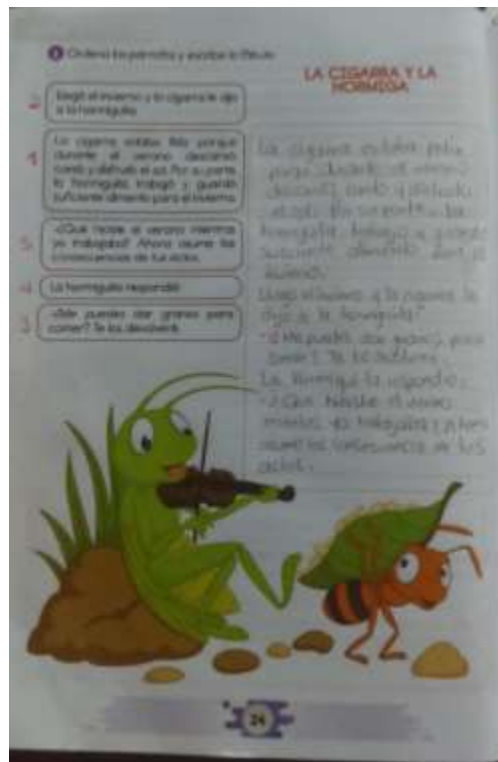 Ordena los párrafos y escribe la fábula.
LA CIGARRA Y LA
HORMIGA
2
Llegó el invierno y la cigarra le dijo
a la hormiguita:
1
La cigarra estaba feliz porque
durante el verano descansó,
cantó y disfrutó el sol. Por su parte,
la hormiguita trabajó y guardó
suficiente alimento para el invierno.
5
-¿Qué hiciste el verano mientras
yo trabajaba? Ahora asume las
consecuencias de tus actos.
4
La hormiguita respondió:
3
-¿Me puedes dar granos para
comer? Te los devolveré.
La cigarra estaba feliz
durante el verano
descansó, cantó y disfrutó
el sol. Por su parte la
hormiguita trabajó y guardó
suficiente alimento para el
invierno.
Llegó el invierno y la cigarra le
dijo a la hormiguita:
-¿Me puedes dar granos para
comer? Te los
La hormiguita respondió:
-¿Qué hiciste el verano
mientras yo trabajaba? Ahora
asume las de tus
actos.
24